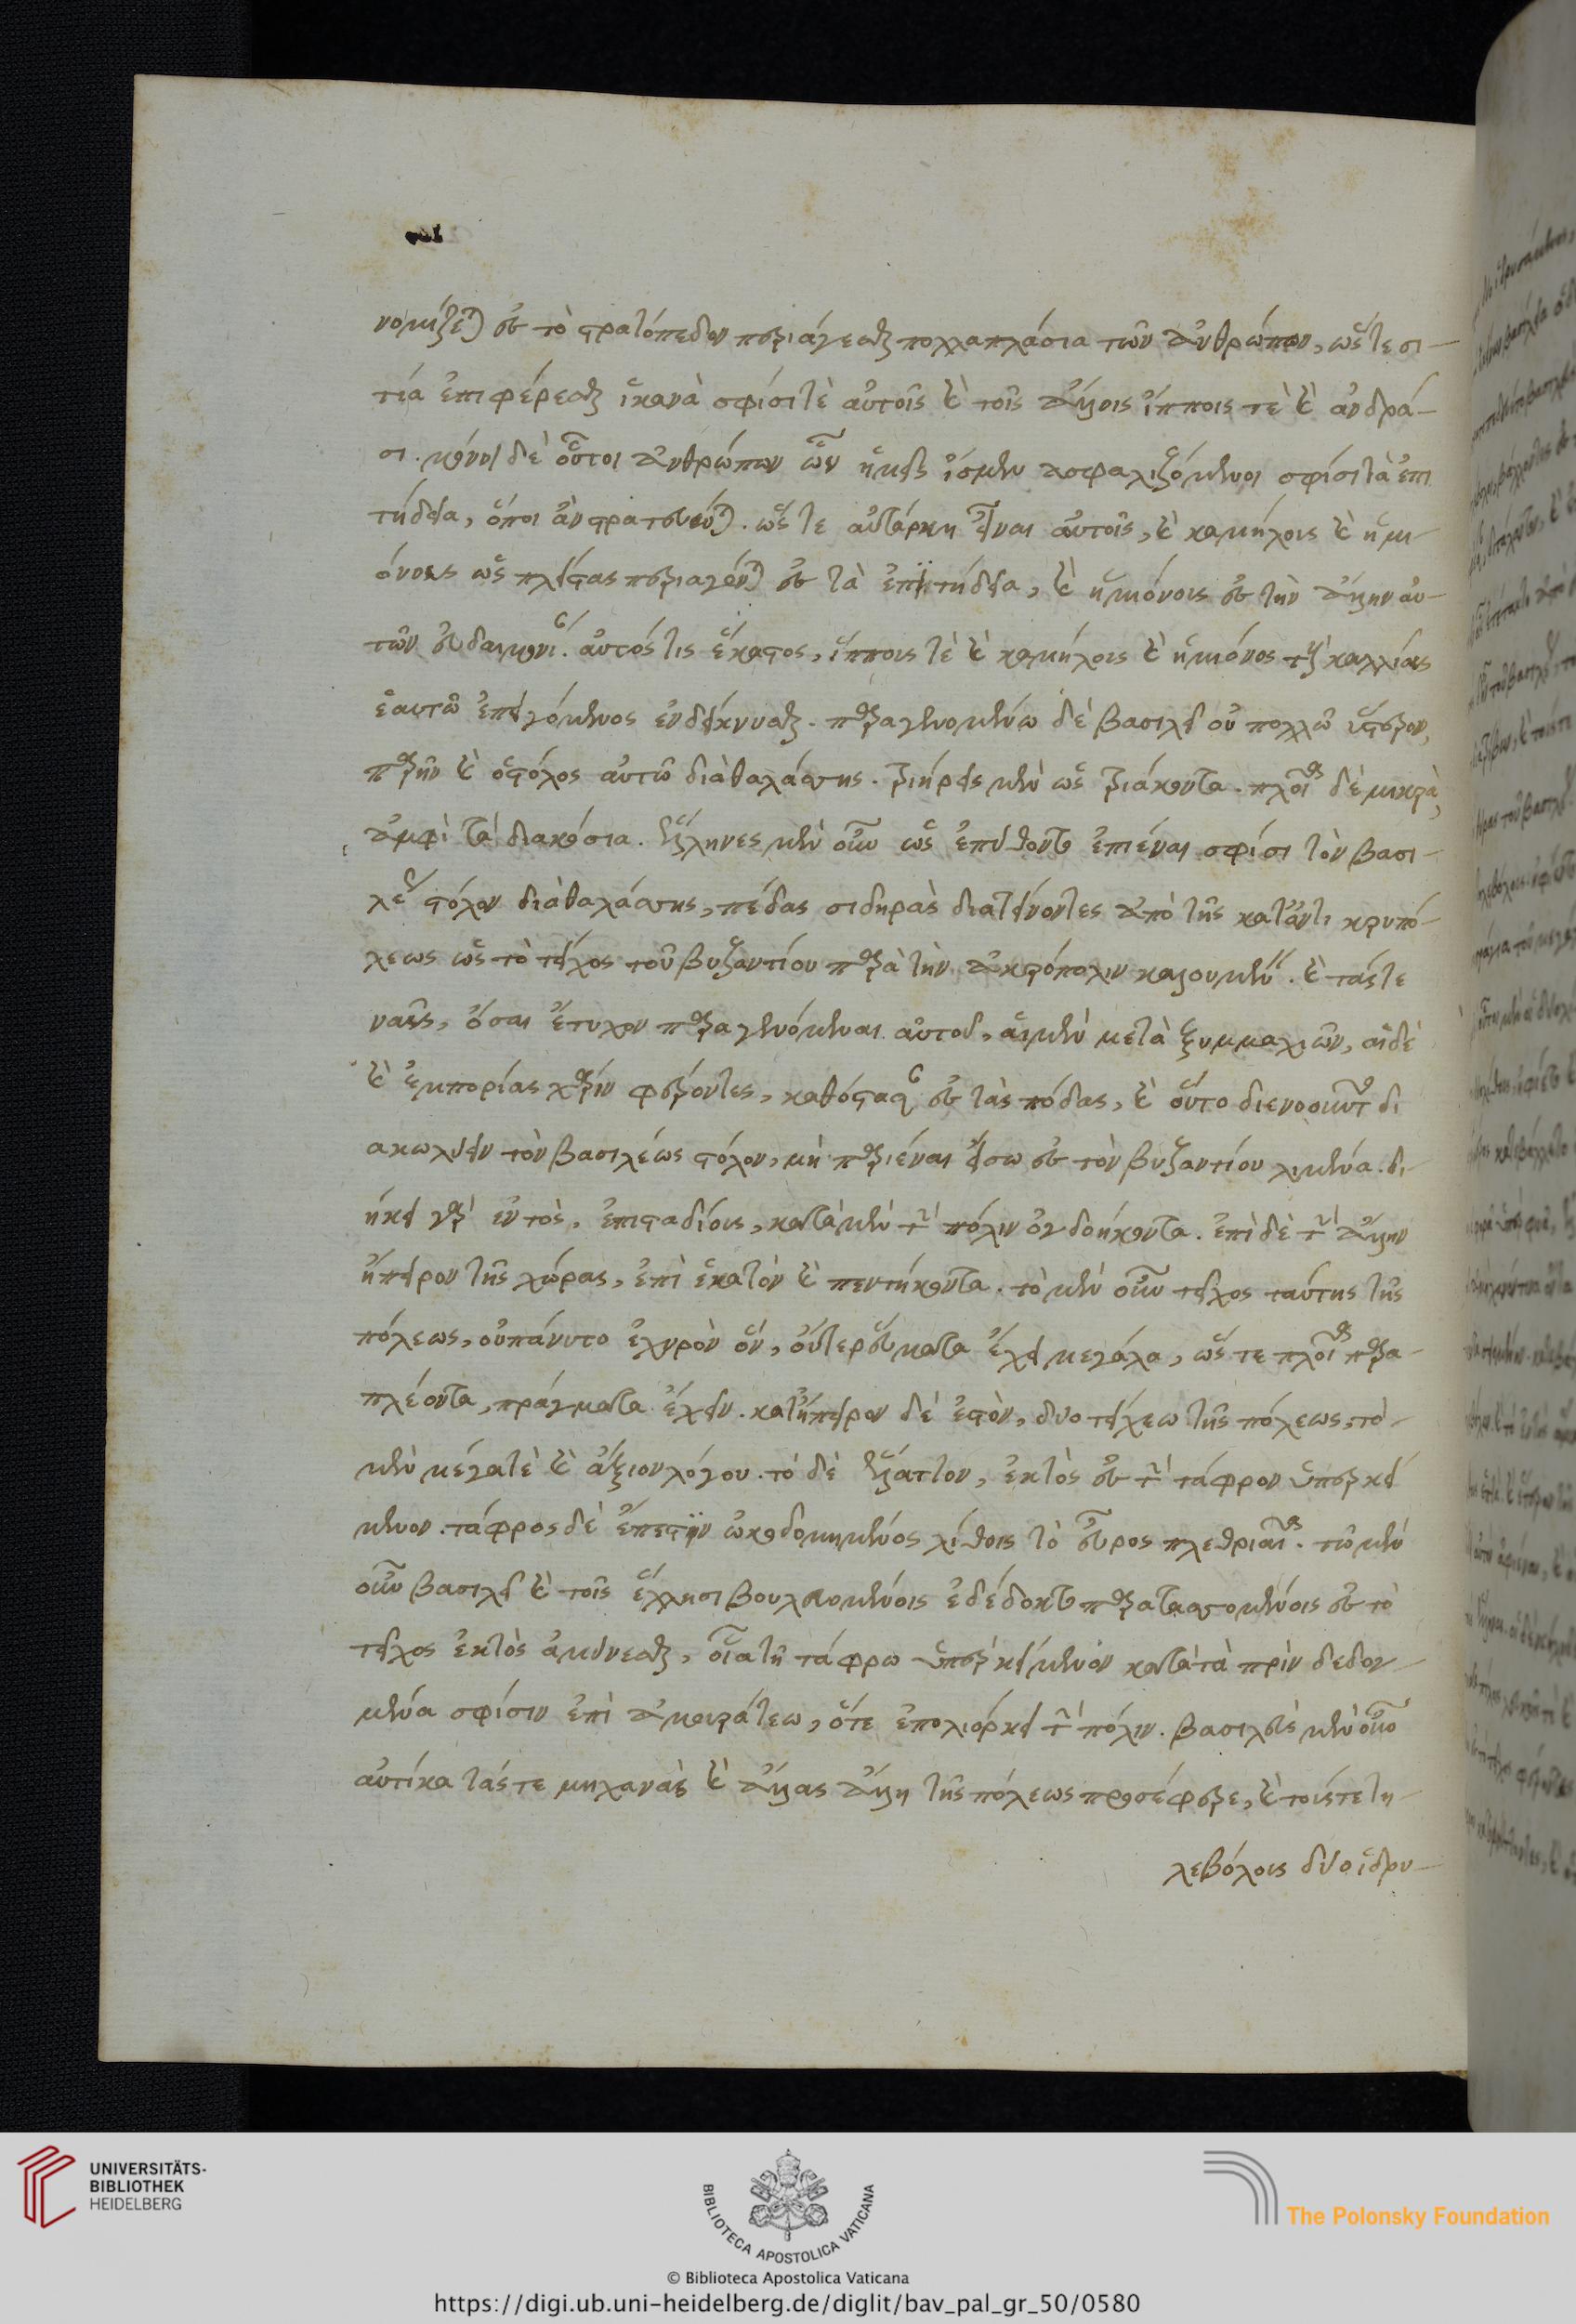 νομίζεται ἐς τὸ στρατόπεδον περιάγεσθαι πολλαπλάσια τῶν ἀνθρώπων, ὥστε σι-
τία ἐπιφέρεσθαι ἱκανὰ σφίσι τὲ αὐτοῖς καὶ τοῖς ἄλλοις ἵπποις τὲ καὶ ἀνδρά-
σι. μόνοι δὲ οὗτοι ἀνθρώπων ὧν ἡμεῖς ἴσμεν ἀσφαλιζόμενοι σφίσι τὰ ἐπι
τήδεια, ὅποι ἂν στρατεύωνται. ὥς τε αὐτάρκη εἶναι αὐτοῖς, καὶ καμήλοις καὶ ἡμι-
όνοις ὡς πλείστας περιαγόνται ἐς τὰ ἐπιτήδεια, καὶ ἡμιόνοις ἐς τὴν ἄλλην αὐ-
τῶν εὐδαιμονίαν. αὐτός τις ἕκαστος, ἵπποις τὲ καὶ καμήλοις καὶ ἡμιόνοις ταῖς καλλίσταις
ἑαυτῶ ἐπειγόμενος ἐνδείκνυσθαι. παραγενομένω δὲ βασιλεῖ οὐ πολλῶ ὕστερον,
παρῆν καὶ ὁ στόλος αὐτῶ διὰ θαλάσσης. τριήρεις μὲν ὡς τριάκοντα. πλοῖα δὲ μικρὰ,
ἀμφὶ τὰ διακόσια. Ἕλληνες μὲν οὖν ὡς ἐπύθοντο ἐπιέναι σφίσι τὸν βασι-
λέως στόλον διὰ θαλάσσης, πέδας σιδηρὰς διατείνοντες ἀπὸ τῆς καταντικρυ πό-
λεως ὡς τὸ τεῖχος τοῦ βυζαντίου παρὰ τὴν ἀκρόπολιν καλουμένην. καὶ τάς τε
ναῦς, ὅσαι ἔτυχον παραγενόμεναι αὐτοῦ, αἱ μὲν μετὰ ξυμμαχιῶν, αἱ δὲ
καὶ ἐμπορίας χάριν φέροντες, καθίστασαν ἐς τὰς πόδας, καὶ οὕτο διενοοῦντο δι
ακωλύειν τὸν βασιλέως στόλον, μὴ παριέναι εἴσω ἐς τὸν βυζαντίου λιμένα. δι-
ήκει γὰρ ἐντὸς, ἐπὶ σταδίοις, κατὰ μὲν τὴν πόλιν ὀγδοήκοντα. ἐπὶ δὲ τὴν ἄλλην
ἤπειρον τῆς χώρας, ἐπὶ ἑκατὸν καὶ πεντήκοντα. τὸ μὲν οὖν τεῖχος ταύτης τῆς
πόλεως, οὐ πάνυ το ἐχυρὸν ὂν, οὔτε ῥεύματα ἔχει μεγάλα, ὥς τε πλοῖα παρα-
πλέοντα, πράγματα ἔχειν. κατ' ἤπειρον δὲ ἐστὸν, δυο τείχεω τῆς πόλεως, τὸ
μὲν μέγα τὲ καὶ ἄξιον λόγου. τὸ δὲ ἔλαττον, ἐκτὸς ἐς τὴν τάφρον ὑπερκεί
μενον. τάφρος δὲ ἔπεστιν ὠκοδομημένος λίθοις τὸ εὖρος πλεθριαῖα. τῶ μὲν
οὖν βασιλεῖ καὶ τοῖς ἕλλησι βουλευομένοις ἐδέδοκτο παρατασσομένοις ἐς τὸ
τεῖχος ἐκτὸς ἀμύνεσθαι, οἷα τῆ τάφρω ὑπερκείμενον κατὰ τὰ πρὶν δεδογ-
μένα σφίσιν ἐπὶ ἀμουράτεω, ὅτε ἐπολιόρκει τὴν πόλιν. βασιλεὺς μὲν οὖν
αὐτίκα τάς τε μηχανὰς καὶ ἄλλας ἄλλη τῆς πόλεως προσέφερε, καὶ τοῖς τε τη-
λεβόλοις δύο ἱδρυ-
UNIVERSITÄTS-
BIBLIOTHEK
HEIDELBERG
BIBLIOTECA APOSTOLICA VATICANA
The Polonsky Foundation
© Biblioteca Apostolica Vaticana
https://digi.ub.uni-heidelberg.de/diglit/bav_pal_gr_50/0580